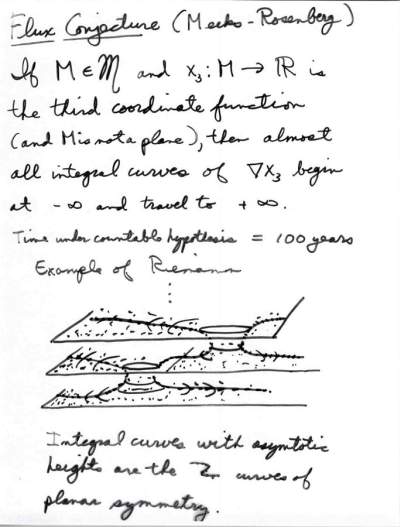 Flux Conjecture (Meeks-Rosenberg)
If M ∈ 𝓜 and x₃: M → ℝ is
the third coordinate function
(and M is not a plane), then almost
all integral curves of ∇x₃ begin
at -∞ and travel to +∞.
Time under countable hypothesis = 100 years
Example of Riemann
Integral curves with asymtotic
heights are the curves of
planar symmetry.